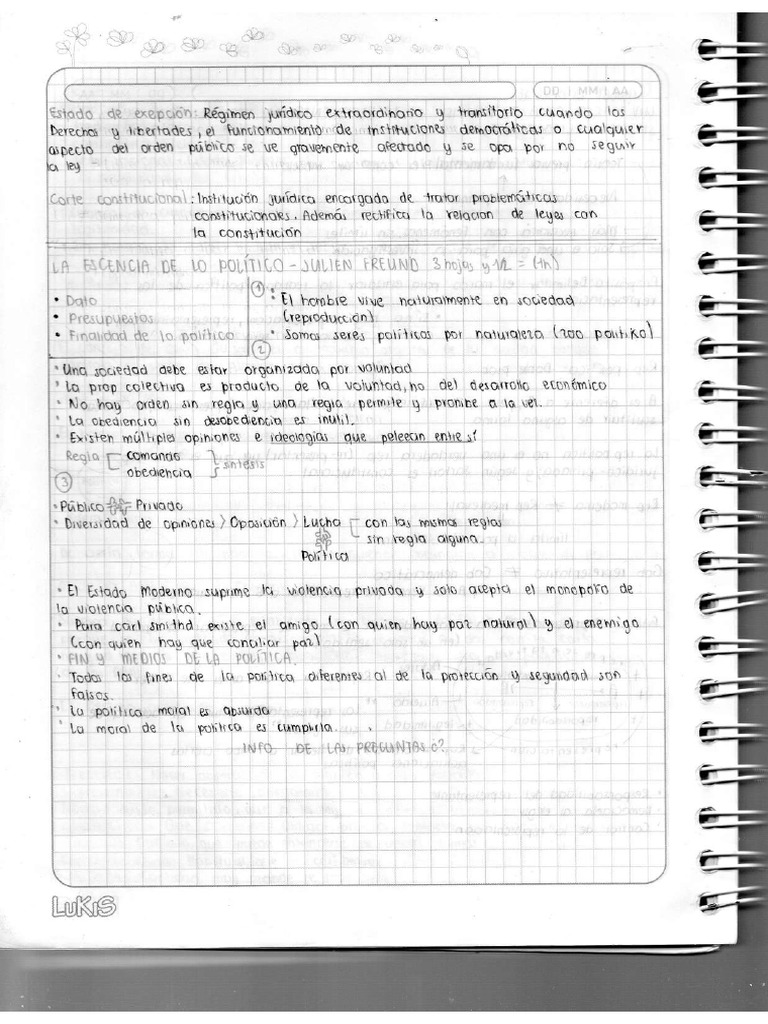 DD | MM | AA
Estado de exepción: Régimen jurídico extraordinario y transitorio cuando los
Derechos y libertades, el funcionamiento de instituciones democráticas o cualquier
aspecto del orden público se ve gravemente afectado y se opa por no seguir
la ley
Corte constitucional: Institución jurídica encargada de tratar problemáticas
constitucionales. Además rectifica la relacion de leyes con
la constitución
LA ESCENCIA DE LO POLÍTICO - JULIEN FREUND 3 hojas y 1/2 = (1h)
• Dato
• Presupuestos
• Finalidad de lo político
① • El hombre vive naturalmente en sociedad
(reproducción)
• Somos seres políticos por naturaleza (zoo politiko)
②
• Una sociedad debe estar organizada por voluntad
• La prop colectiva es producto de la voluntad, no del desarrollo económico
• No hay orden sin regla y una regla permite y prohibe a la vez.
• La obediencia sin desobediencia es inutil.
• Existen múltiples opiniones e ideologías que peleean entre sí
Regla [ comando
obediencia } sintesis
③
• Público Privado
• Diversidad de opiniones > Oposición > Lucha [ con las mismas reglas
sin regla alguna.
Política
• El Estado Moderno suprime la violencia privada y solo acepta el monopolio de
la violencia pública.
• Para carl smithd existe el amigo (con quien hay paz natural) y el enemigo
(con quien hay que conciliar paz)
• FIN Y MEDIOS DE LA POLÍTICA.
• Todos los fines de la política diferentes al de la protección y seguridad son
falsos.
• La política moral es absurda
• La moral de la política es cumplirla.
INFO DE LAS PREGUNTAS ó?
LUKIS